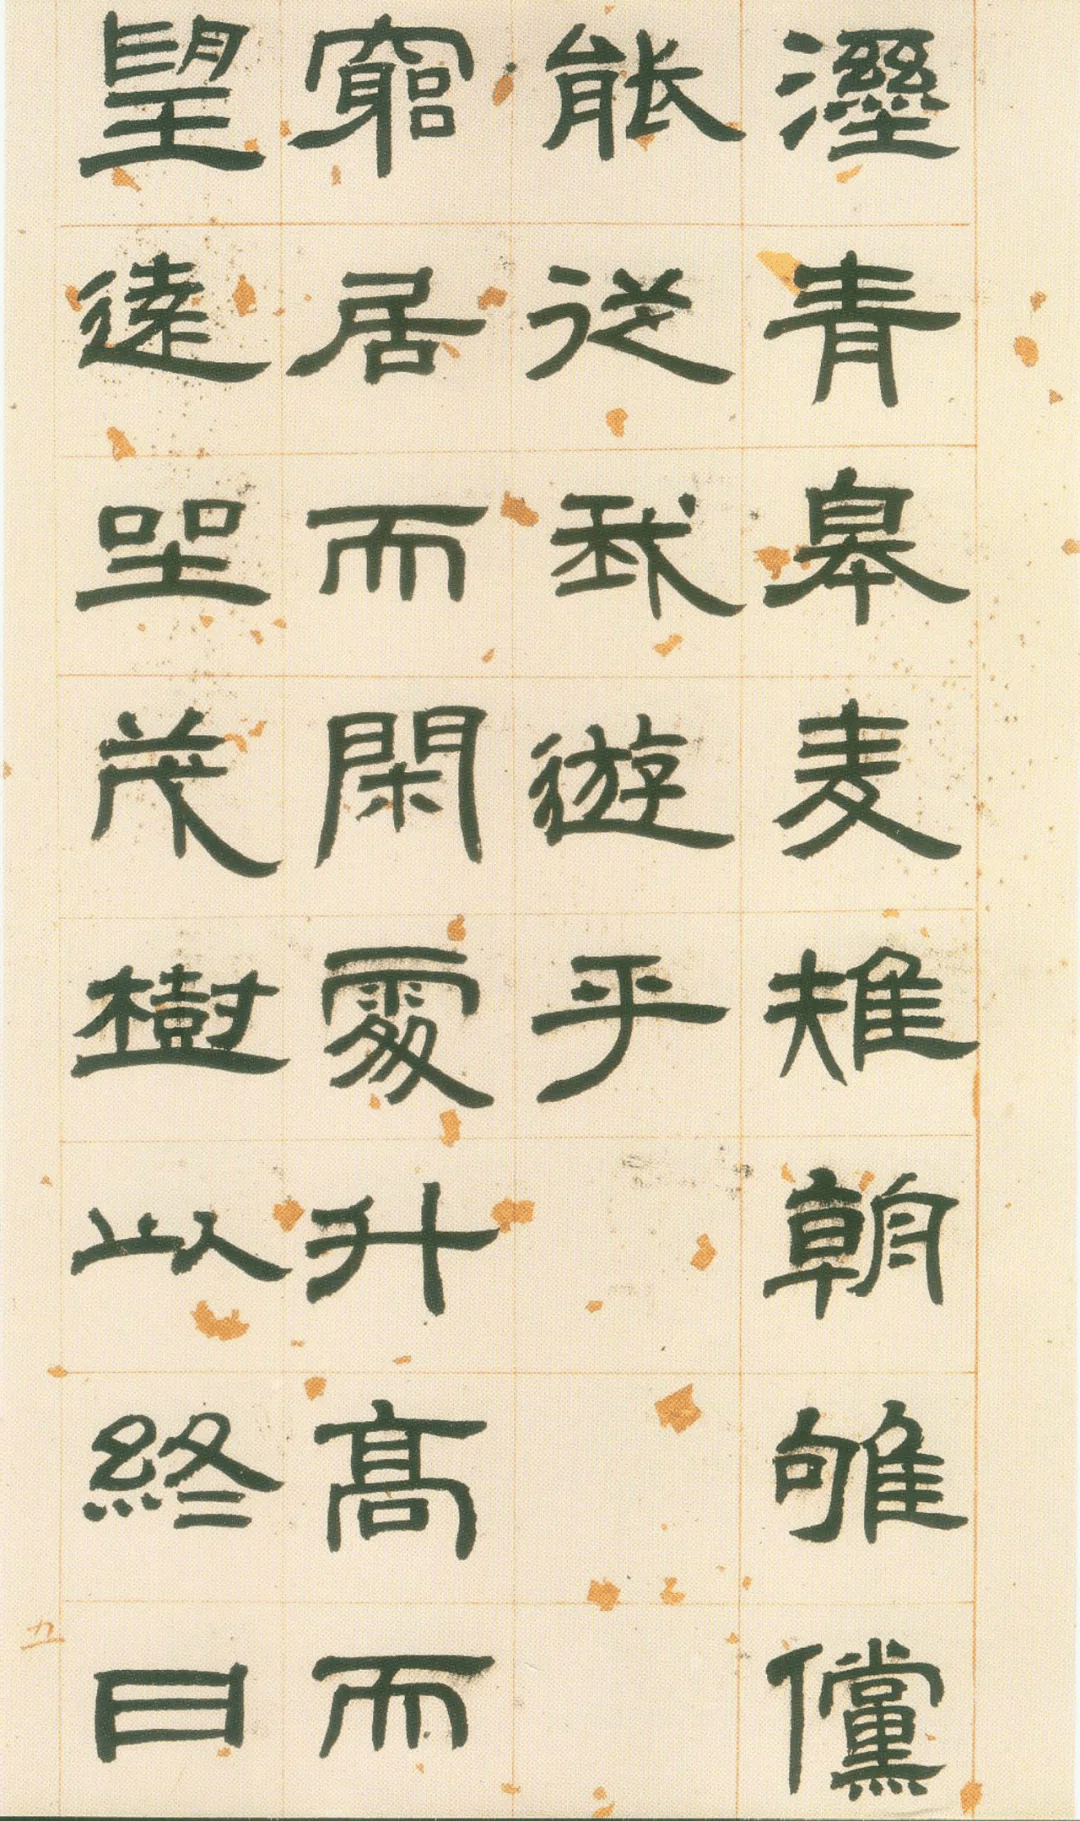 溼青皋麦雉朝雊儻
能從我遊乎
窮居而閑處升高而
望遠坐茂樹以終日
九